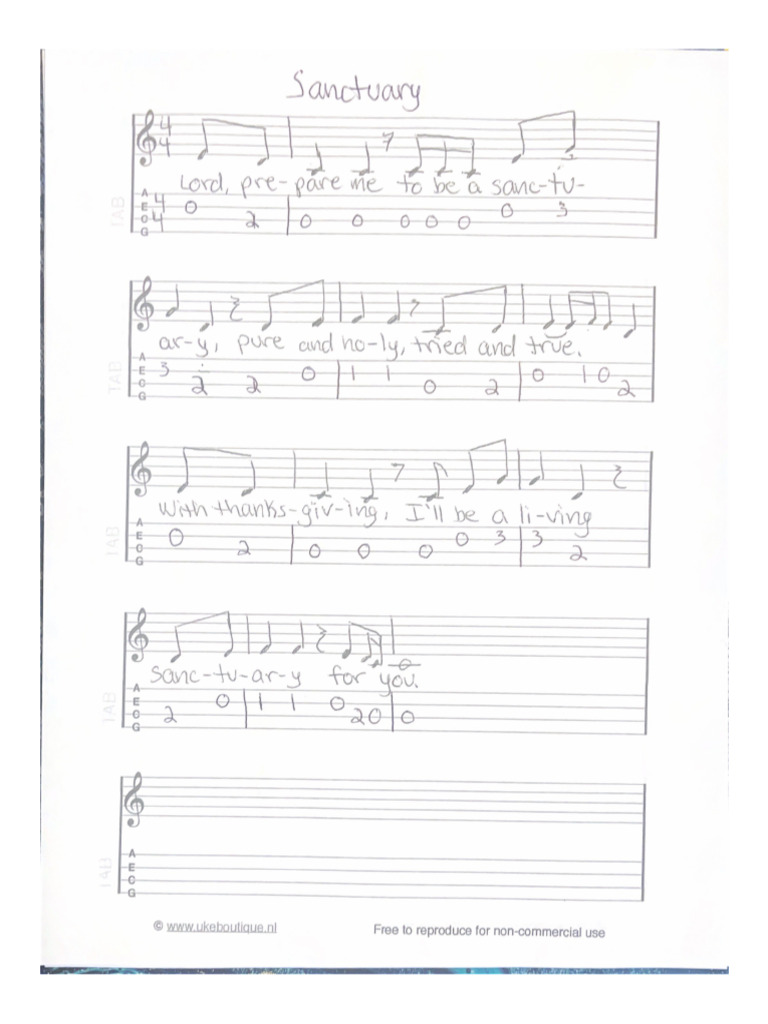 Sanctuary
4 4
7
Lord, pre-pare me to be a sanc-tu-
TAB A E C G 4 4 0 2 0 0 0 0 0 0 3
ar-y, pure and ho-ly, tried and true.
TAB A E C G 3 2 2 0 1 1 0 2 0 1 0 2
With thanks-giv-ing, I'll be a li-ving
TAB A E C G 0 2 0 0 0 0 3 3 2
Sanc-tu-ar-y for you.
TAB A E C G 2 0 1 1 0 2 0 0
TAB A E C G
© www.ukeboutique.nl Free to reproduce for non-commercial use